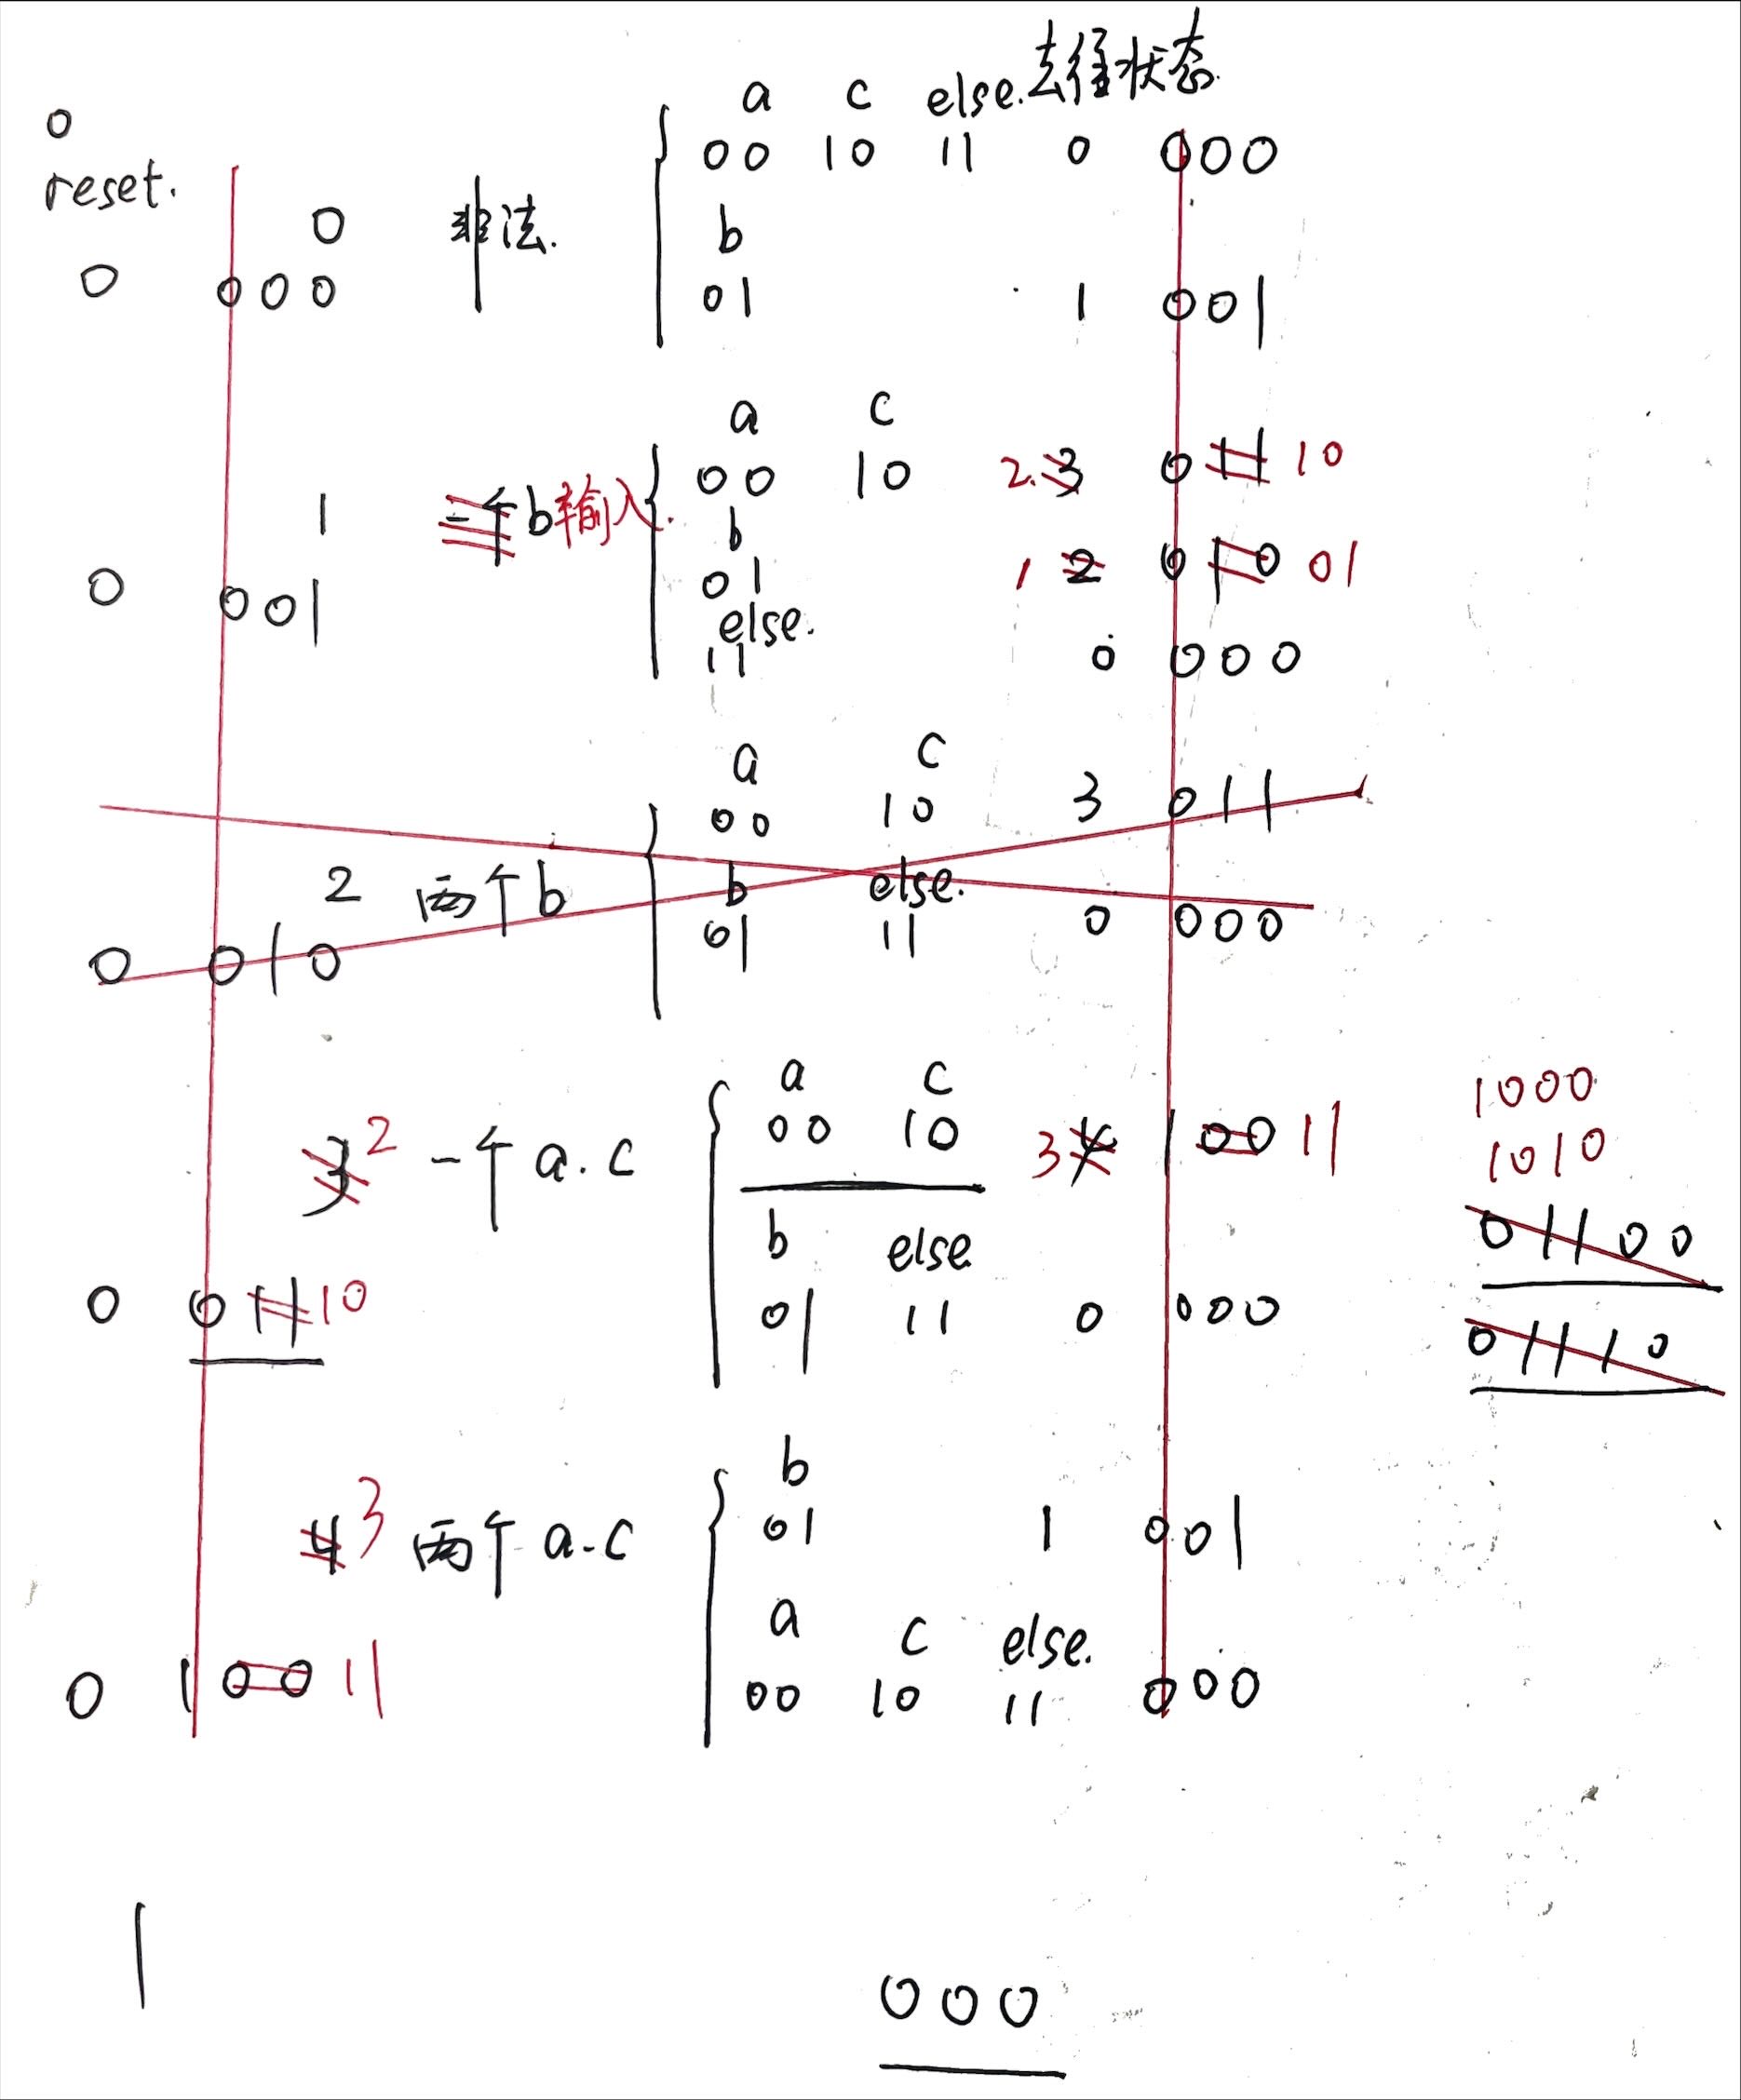 a c else. 去往状态.
o
reset.
00 10 11 0 000
0 非法.
b
0 000
01 1 001
a c
00 10 2. 3 0 11 10
1 一个b 输入.
b
01 1 2 0 10 01
0 001
else.
11 0 000
a c
00 10 3 011
2 两个b
b else.
01 11 0 000
0 010
a c
00 10 3 4 1 00 11
1000
1010
3 2 一个 a.c
b else
01100
0 0 11 10
01 11 0 000
01110
b
4 3 两个 a.c
01 1 001
a c else.
0 1 00 11
00 10 11 000
1
000